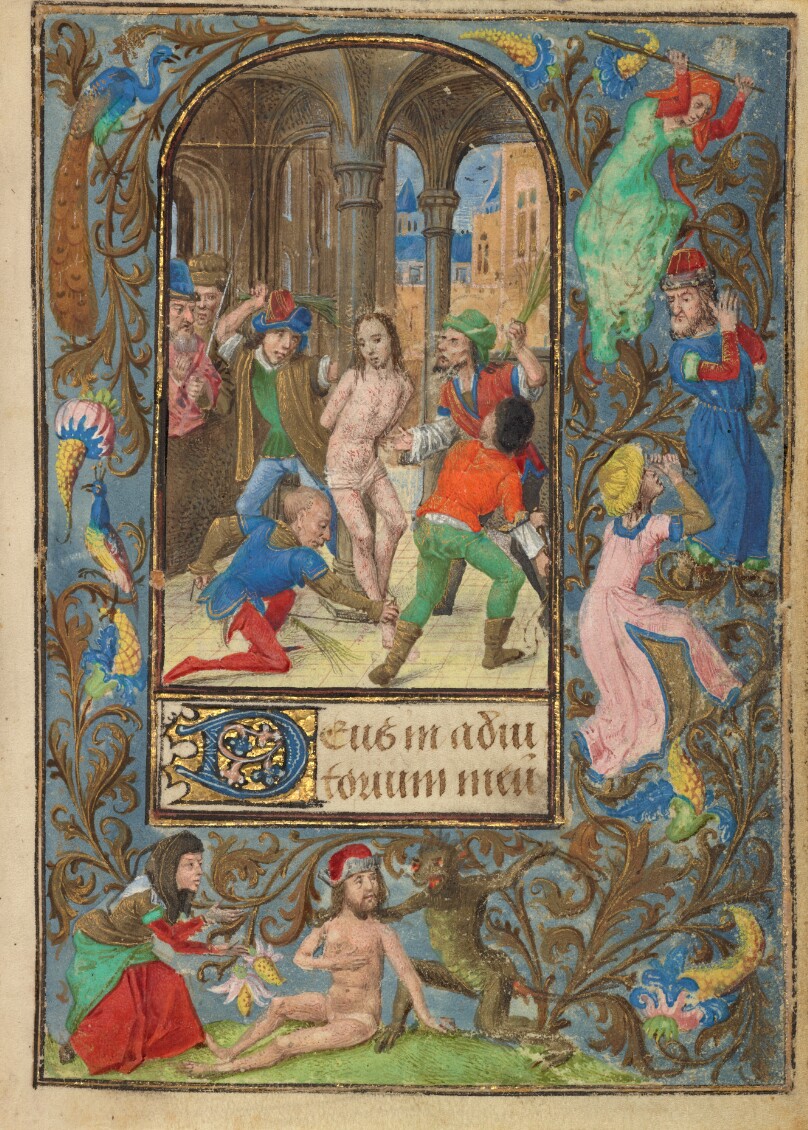 Deus in adiu
torium meū